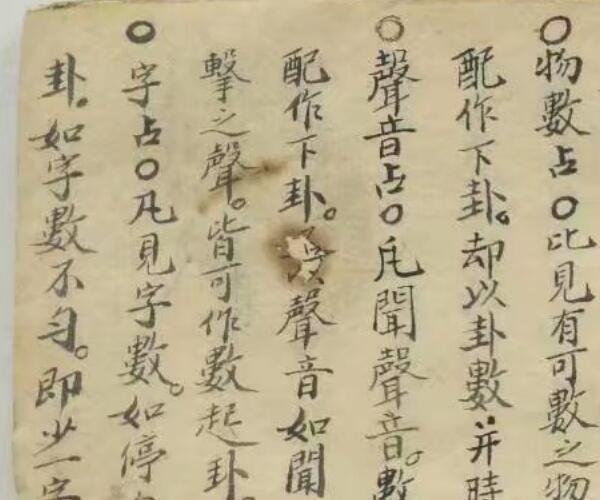 ○物數占○比見有可數之物
配作下卦。却以卦數并時
○聲音占○凡聞聲音。數
配作下卦。聲音如聞
擊之聲。皆可作數起卦
○字占○凡見字數。如停
卦。如字數不勻。即少一字